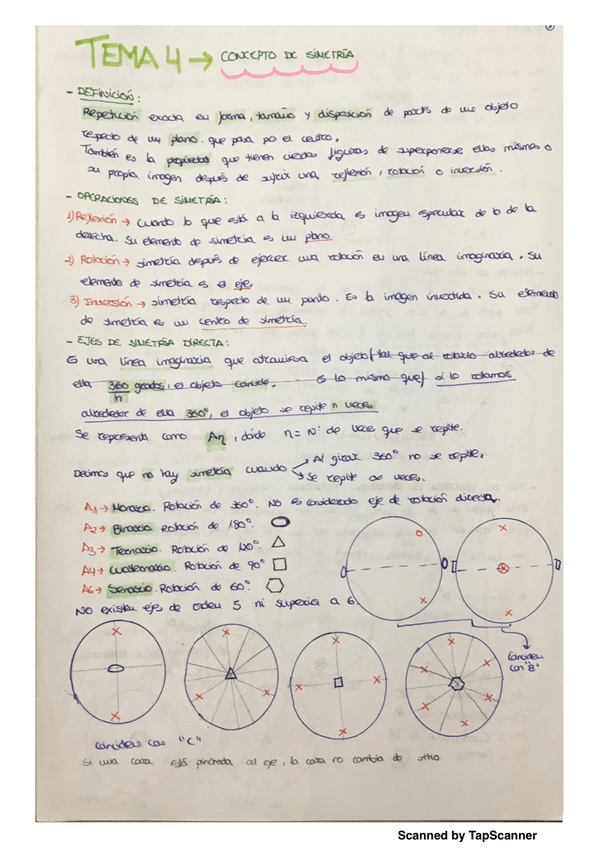 TEMA 4 → CONCEPTO DE SIMETRÍA
- DEFINICIÓN:
Repetición exacta en forma, tamaño y disposición de partes de un objeto
respecto de un plano que pasa por el centro.
También es la propiedad que tienen ciertas figuras de superponerse ellas mismas o
su propia imagen después de sufrir una reflexión, rotación o inversión.
- OPERACIONES DE SIMETRÍA:
1) Reflexión → Cuando lo que está a la izquierda es imagen especular de lo de la
derecha. Su elemento de simetría es un plano.
2) Rotación → simetría después de ejercer una rotación en una línea imaginaria. Su
elemento de simetría es el eje.
3) Inversión → simetría respecto de un punto. Es la imagen invertida. Su elemento
de simetría es un centro de simetría.
- EJES DE SIMETRÍA DIRECTA:
Es una línea imaginaria que atraviesa el objeto/ tal que al rotarlo alrededor de
ella 360 grados/n, el objeto coincide. Es lo mismo que/ si lo rotamos
alrededor de ella 360°, el objeto se repite n veces.
Se representa como An, dónde n = Nº de veces que se repite.
Decimos que no hay simetría cuando → Al girar 360° no se repite.
→ Se repite ∞ veces.
A1 → Monario. Rotación de 360°. No es considerado eje de rotación directa.
A2 → Binario Rotación de 180°.
A3 → Ternario. Rotación de 120°.
A4 → Cuaternario. Rotación de 90°
A6 → Senario. Rotación de 60°.
No existen ejes de orden 5 ni superior a 6.
Coinciden con "B"
Coinciden con "C"
Si una cara está pinchada al eje, la cara no cambia de sitio.
Scanned by TapScanner